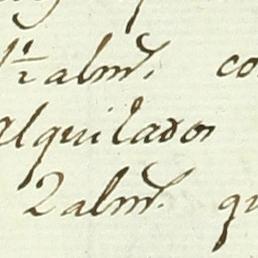 1½ almˢ. co
alquilados
2 almˢ. qu